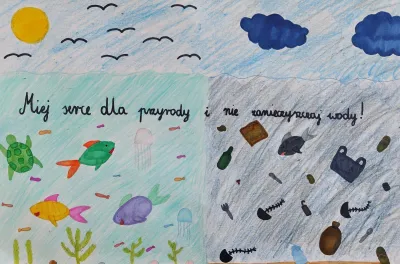 Miej serce dla przyrody i nie zanieczyszczaj wody!